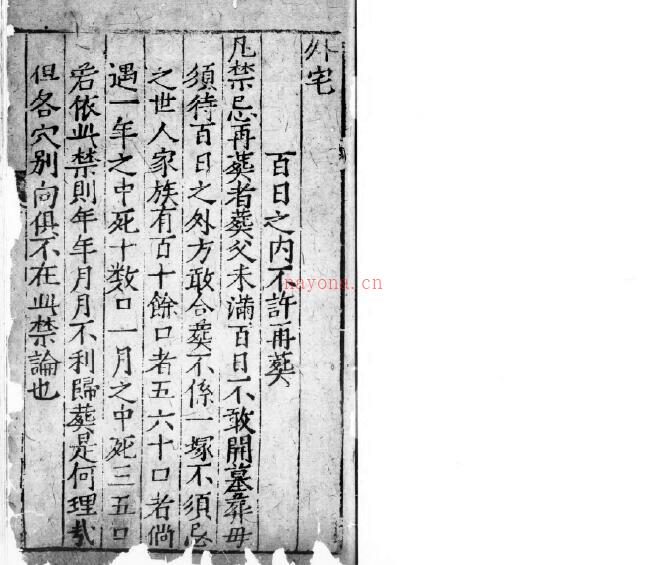 外宅
百日之内不許再葬
凡禁忌再葬者葬父未滿百日不敢開墓葬毋
須待百日之外方敢合葬不係一塚不須忌
之世人家族有百十餘口者五六十口者倘
遇一年之中死十数口一月之中死三五口
若依此禁則年年月月不利歸葬是何理哉
但各穴别向俱不在此禁論也
nayona.cn